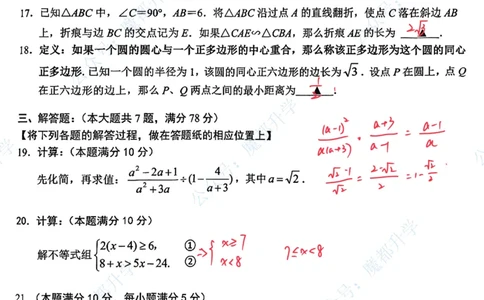 17. 已知△ABC 中，∠C=90°，AB=6. 将△ABC 沿过点 A 的直线翻折，使点 C 落在斜边 AB
上，折痕与边 BC 的交点记为 E. 如果△CAE∽△CBA，那么折痕 AE 的长为 2√3 .
18. 定义：如果一个圆的圆心与一个正多边形的中心重合，那么称该正多边形为这个圆的同心
正多边形. 已知一个圆的半径为 1，该圆的同心正六边形的边长为 √3 . 设点 P 在圆上，点 Q
在正六边形的边上，那么 P、Q 两点之间的最小距离为 1/2 .
三、解答题：（本大题共 7 题，满分 78 分）
【将下列各题的解答过程，做在答题纸的相应位置上】
19. 计算：（本题满分 10 分）
(a-1)²/a(a+3) · a+3/a-1 = a-1/a
先化简，再求值：a²-2a+1/a²+3a ÷(1-4/a+3)，其中 a=√2 .
√2-1/√2 = 2-√2/2 = 1-√2/2
20. 计算：（本题满分 10 分）
解不等式组{2(x-4)≥6, ① → {x≥7 7≤x<8
8+x>5x-24. ② x<8
21. （本题满分 10 分，每小题满分 5 分）
公众号：魔都升学